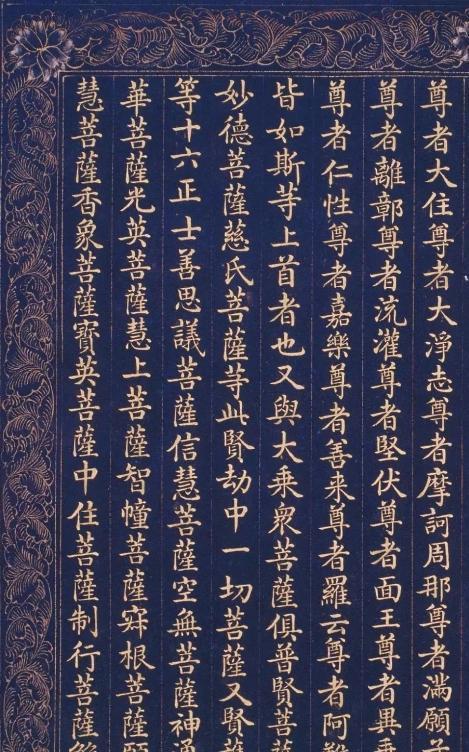 尊者大住尊者大淨志尊者摩訶周那尊者滿願
尊者離鄣尊者流灌尊者堅伏尊者面王尊者異
尊者仁性尊者嘉樂尊者善来尊者羅云尊者阿
皆如斯等上首者也又與大乗衆菩薩俱普賢菩
妙德菩薩慈氏菩薩等此賢劫中一切菩薩又賢
等十六正士善思議菩薩信慧菩薩空無菩薩神
華菩薩光英菩薩慧上菩薩智幢菩薩寂根菩薩願
慧菩薩香象菩薩寶英菩薩中住菩薩制行菩薩